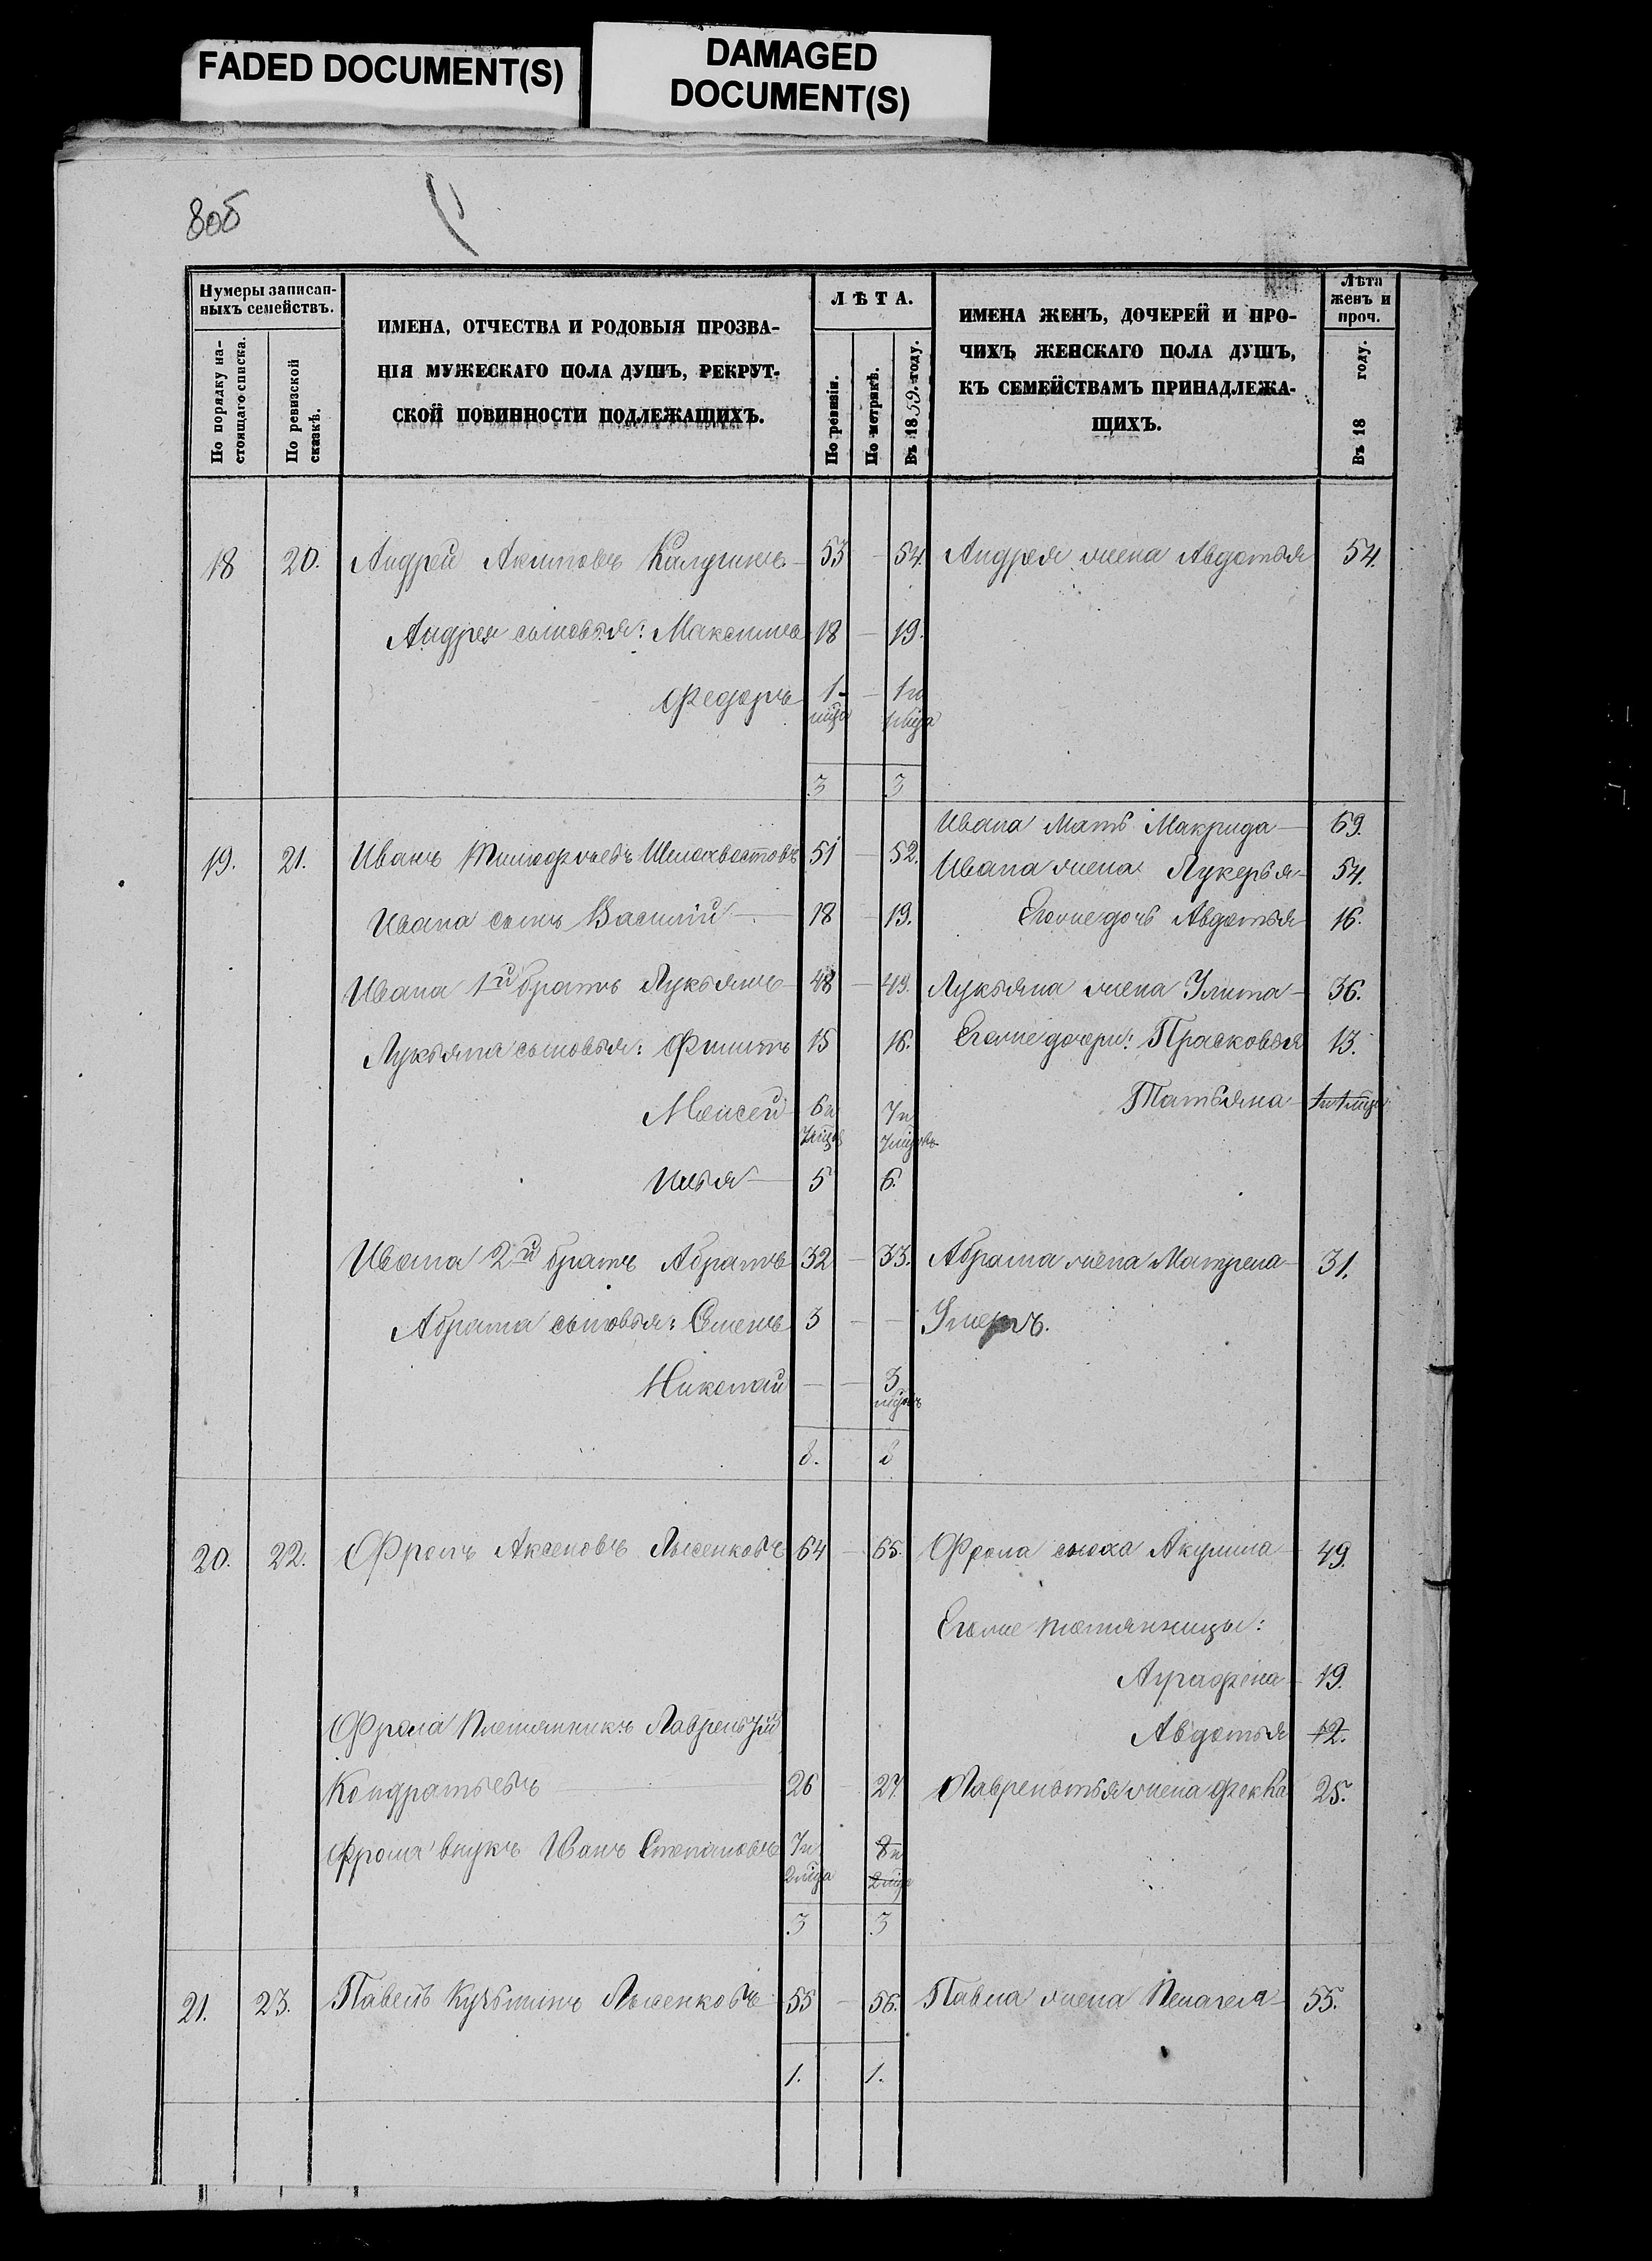 FADED DOCUMENT(S)
DAMAGED
DOCUMENT(S)
8об
Нумеры записан-
ныхъ семействъ.
По порядку на-
стоящаго списка.
По ревизской
сказкѣ.
ИМЕНА, ОТЧЕСТВА И РОДОВЫЯ ПРОЗВА-
НІЯ МУЖЕСКАГО ПОЛА ДУШЪ, РЕКРУТ-
СКОЙ ПОВИННОСТИ ПОДЛЕЖАЩИХЪ.
ЛѢТА.
По ревизіи.
По метрикѣ.
Въ 1859. году.
ИМЕНА ЖЕНЪ, ДОЧЕРЕЙ И ПРО-
ЧИХЪ ЖЕНСКАГО ПОЛА ДУШЪ,
КЪ СЕМЕЙСТВАМЪ ПРИНАДЛЕЖА-
ЩИХЪ.
Лѣта
женъ и
проч.
Въ 18 году.
18 20. Андрей Акимовъ Калугинъ 53 — 54. Андрея жена Авдотья 54.
Андрея сыновья: Максимъ 18 — 19.
Федоръ 1 — 1 го
мѣца мѣца
3 3
Ивана Мать Макрида 69.
19. 21. Иванъ Тимофѣевъ 51 — 52.
Ивана жена Лукерья 54.
Ивана сынъ Василий — 18 — 19. Егоже дочь Авдотья 16.
Ивана 1й братъ Лукьянъ 48 — 49. Лукьяна жена Улита 36.
Лукьяна сыновья: Филипъ 15 16. Егоже дочери: Прасковья 13.
Моисей 6 и 7 и Татьяна
7 мѣцов 7 мѣцовъ
Илья 5 6.
Ивана 2й братъ Абрамъ 32 — 33. Абрама жена Матрена 31.
Абрама сыновья: Семенъ 3 — — Умеръ.
Николай — — 3
мѣцовъ
8. 8
20. 22. Фролъ Аксеновъ Лысенковъ 64 — 65. Фрола сноха Акулина 49.
Егоже племянницы:
Аграфена 19.
Фрола Племянникъ Лаврентий Авдотья 12.
Кондратьевъ 26 27. Лаврентья жена Фекла 25.
Фрола внукъ Иванъ Степановъ 7 и 8 и
2 мѣца 2 мѣца
3 3
21. 23. Павелъ Кузьминъ Лысенковъ 55 — 56. Павла жена Пелагея 55.
1. 1.